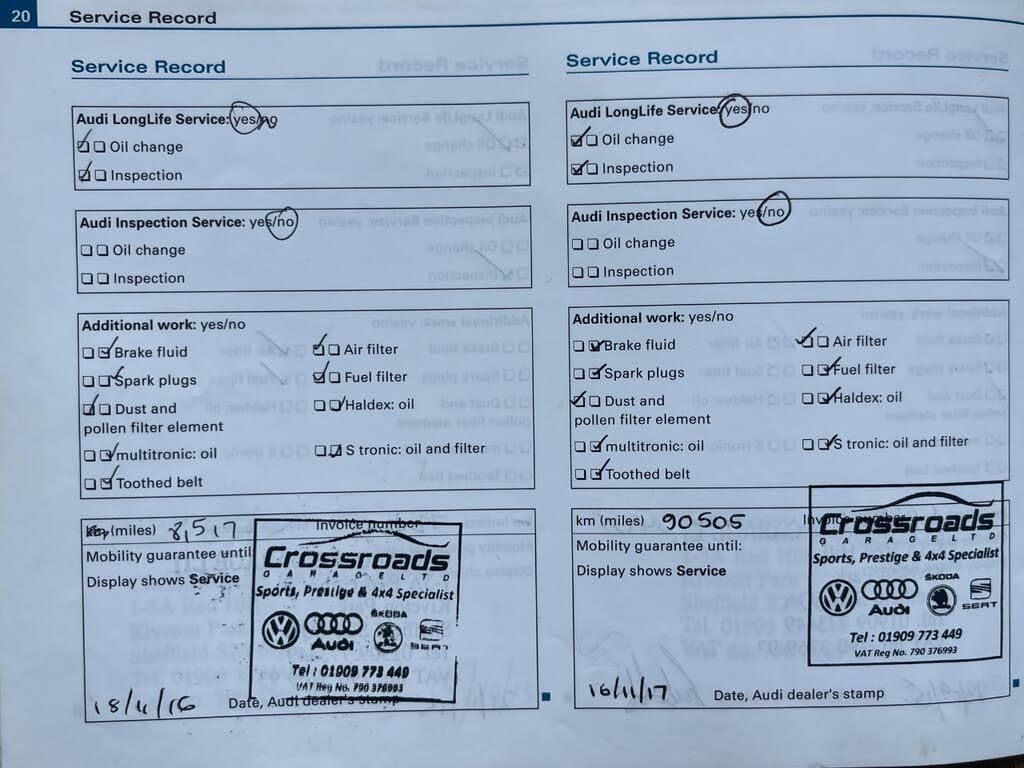 20
Service Record
Service Record
Audi LongLife Service: yes/no
Oil change
Inspection
Audi Inspection Service: yes/no
Oil change
Inspection
Additional work: yes/no
Brake fluid
Air filter
Spark plugs
Fuel filter
Dust and
pollen filter element
Haldex: oil
multitronic: oil
S tronic: oil and filter
Toothed belt
km (miles) 8,517
Invoice number
Mobility guarantee until
Display shows Service
Crossroads
GARAGE LTD
Sports, Prestige & 4x4 Specialist
ŠKODA
AUDI
SEAT
Tel : 01909 773 449
VAT Reg No. 790 376993
18/11/16
Date, Audi dealer's stamp
Service Record
Audi LongLife Service: yes/no
Oil change
Inspection
Audi Inspection Service: yes/no
Oil change
Inspection
Additional work: yes/no
Brake fluid
Air filter
Spark plugs
Fuel filter
Dust and
pollen filter element
Haldex: oil
multitronic: oil
S tronic: oil and filter
Toothed belt
km (miles) 90505
Mobility guarantee until:
Display shows Service
Crossroads
GARAGE LTD
Sports, Prestige & 4x4 Specialist
ŠKODA
Audi
SEAT
Tel : 01909 773 449
VAT Reg No. 790 376993
16/11/17
Date, Audi dealer's stamp